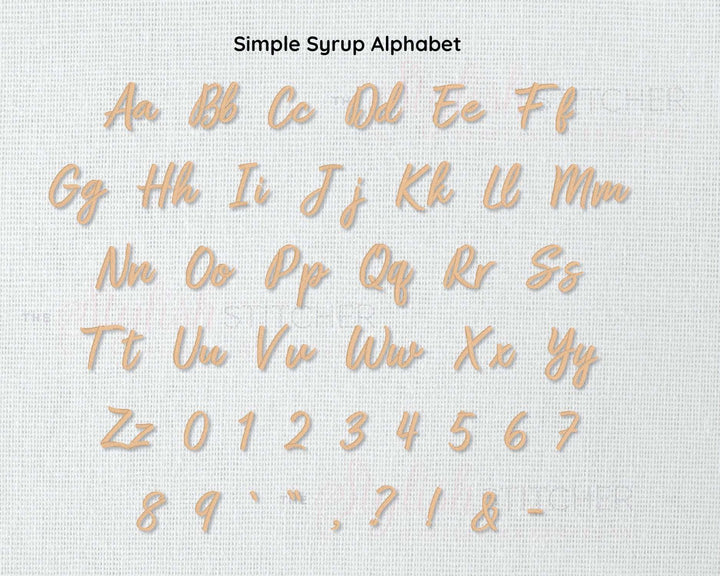 Simple Syrup Alphabet
Aa Bb Cc Dd Ee Ff
Gg Hh Ii Jj Kk Ll Mm
Nn Oo Pp Qq Rr Ss
THE STITCHER
Tt Uu Vv Ww Xx Yy
Zz 0 1 2 3 4 5 6 7
8 9 ` `` , ? ! & -